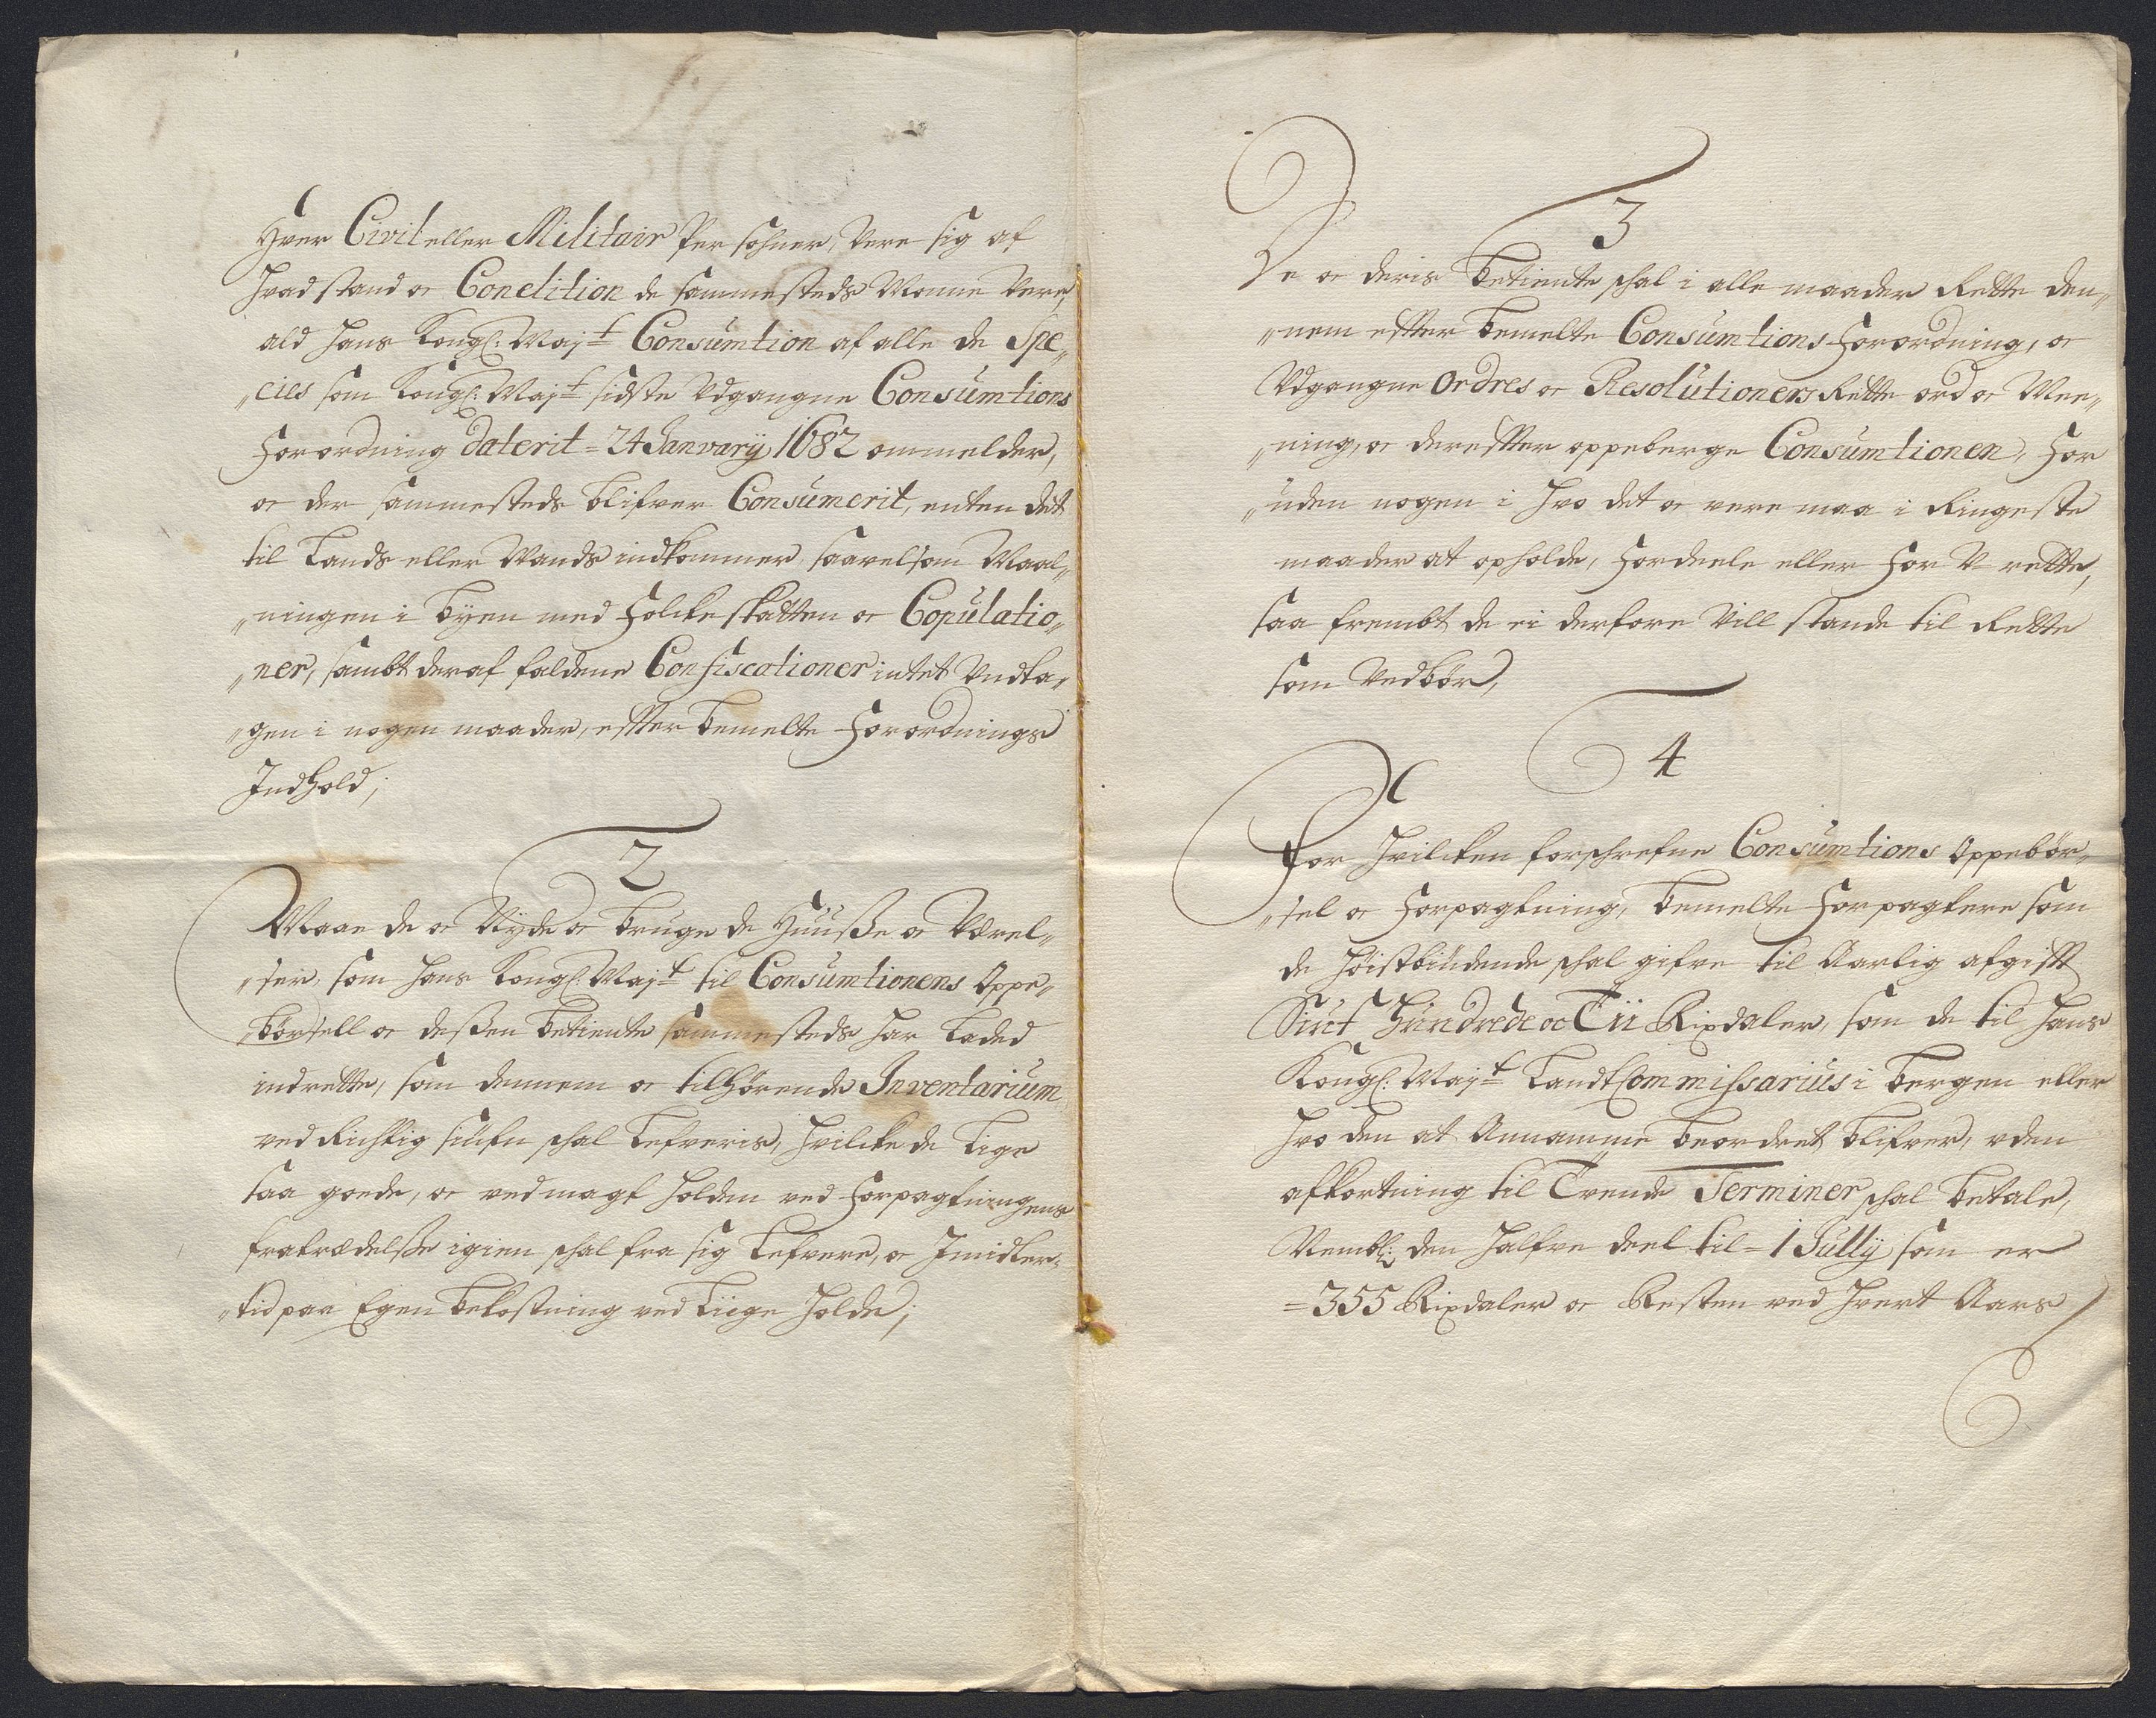 Hver Civil eller Militair Persohner, være sig af
hvad stand oc Condition de sammesteds Monne være,
ald hans Kongl: Mayt Consumtion af alle de Spe„
„cies som Kongl: Mayt sidste Udgangne Consumtions
Forordning daterit = 24 Janvarÿ 1682 ommelder,
oc der sammesteds blifver Consumerit, enten det
til Lands eller Vands indkommer, saavelsom Maal„
„ningen i Byen med Folckeskatten oc Copulatio„
„ner, sambt deraf faldene Confiscationer intet Undta„
„gen i nogen maader, effter bemelte Forordnings
Indhold;
2
Maae de oc Nyde oc bruge de Huuße oc Værel„
„ser, som hans Kongl: Mayt til Consumtionens Oppe„
„børsell oc deßen betiente sammesteds har Laded
indrette, som dennem oc tilhørende Inventarium
ved Richtig siufn schal Lefveris, hvilcke de Lige
saa goede, oc ved magt holden ved Forpagtningens
fratrædelße igien schal fra sig Lefvere, oc Imidler„
„tid paa Egen bekostning ved Liige holde;
3
De oc deris betiente schal i alle maader Rette den„
„nem effter bemelte Consumtions Forordning, oc
Udgangne Ordres oc Resolutioners Rette ord oc Mee„
„ning, oc dereffter oppeberge Consumtionen, For
„uden nogen i hvo det oc være maa i Ringeste
maader at opholde, Fordeele eller For U-rette,
saa frembt de ei derfore vill stande til Rette
som vedbør,
4
For hvilcken forschrefne Consumtions Oppebør„
„sel oc Forpagtning, bemelte Forpagtere som
de høistbiudende schal gifve til Aarlig afgifft
Siuf Hundrede oc Tii Rixdaler, som de til hans
Kongl: Mayt LandtCommissarius i Bergen eller
hvo den at Annamme beordret blifver, uden
afkortning til Tvende Terminer schal betale,
Nembl: den halfve deel til = 1 Jully som er
= 355 Rixdaler oc Resten ved hvert Aars